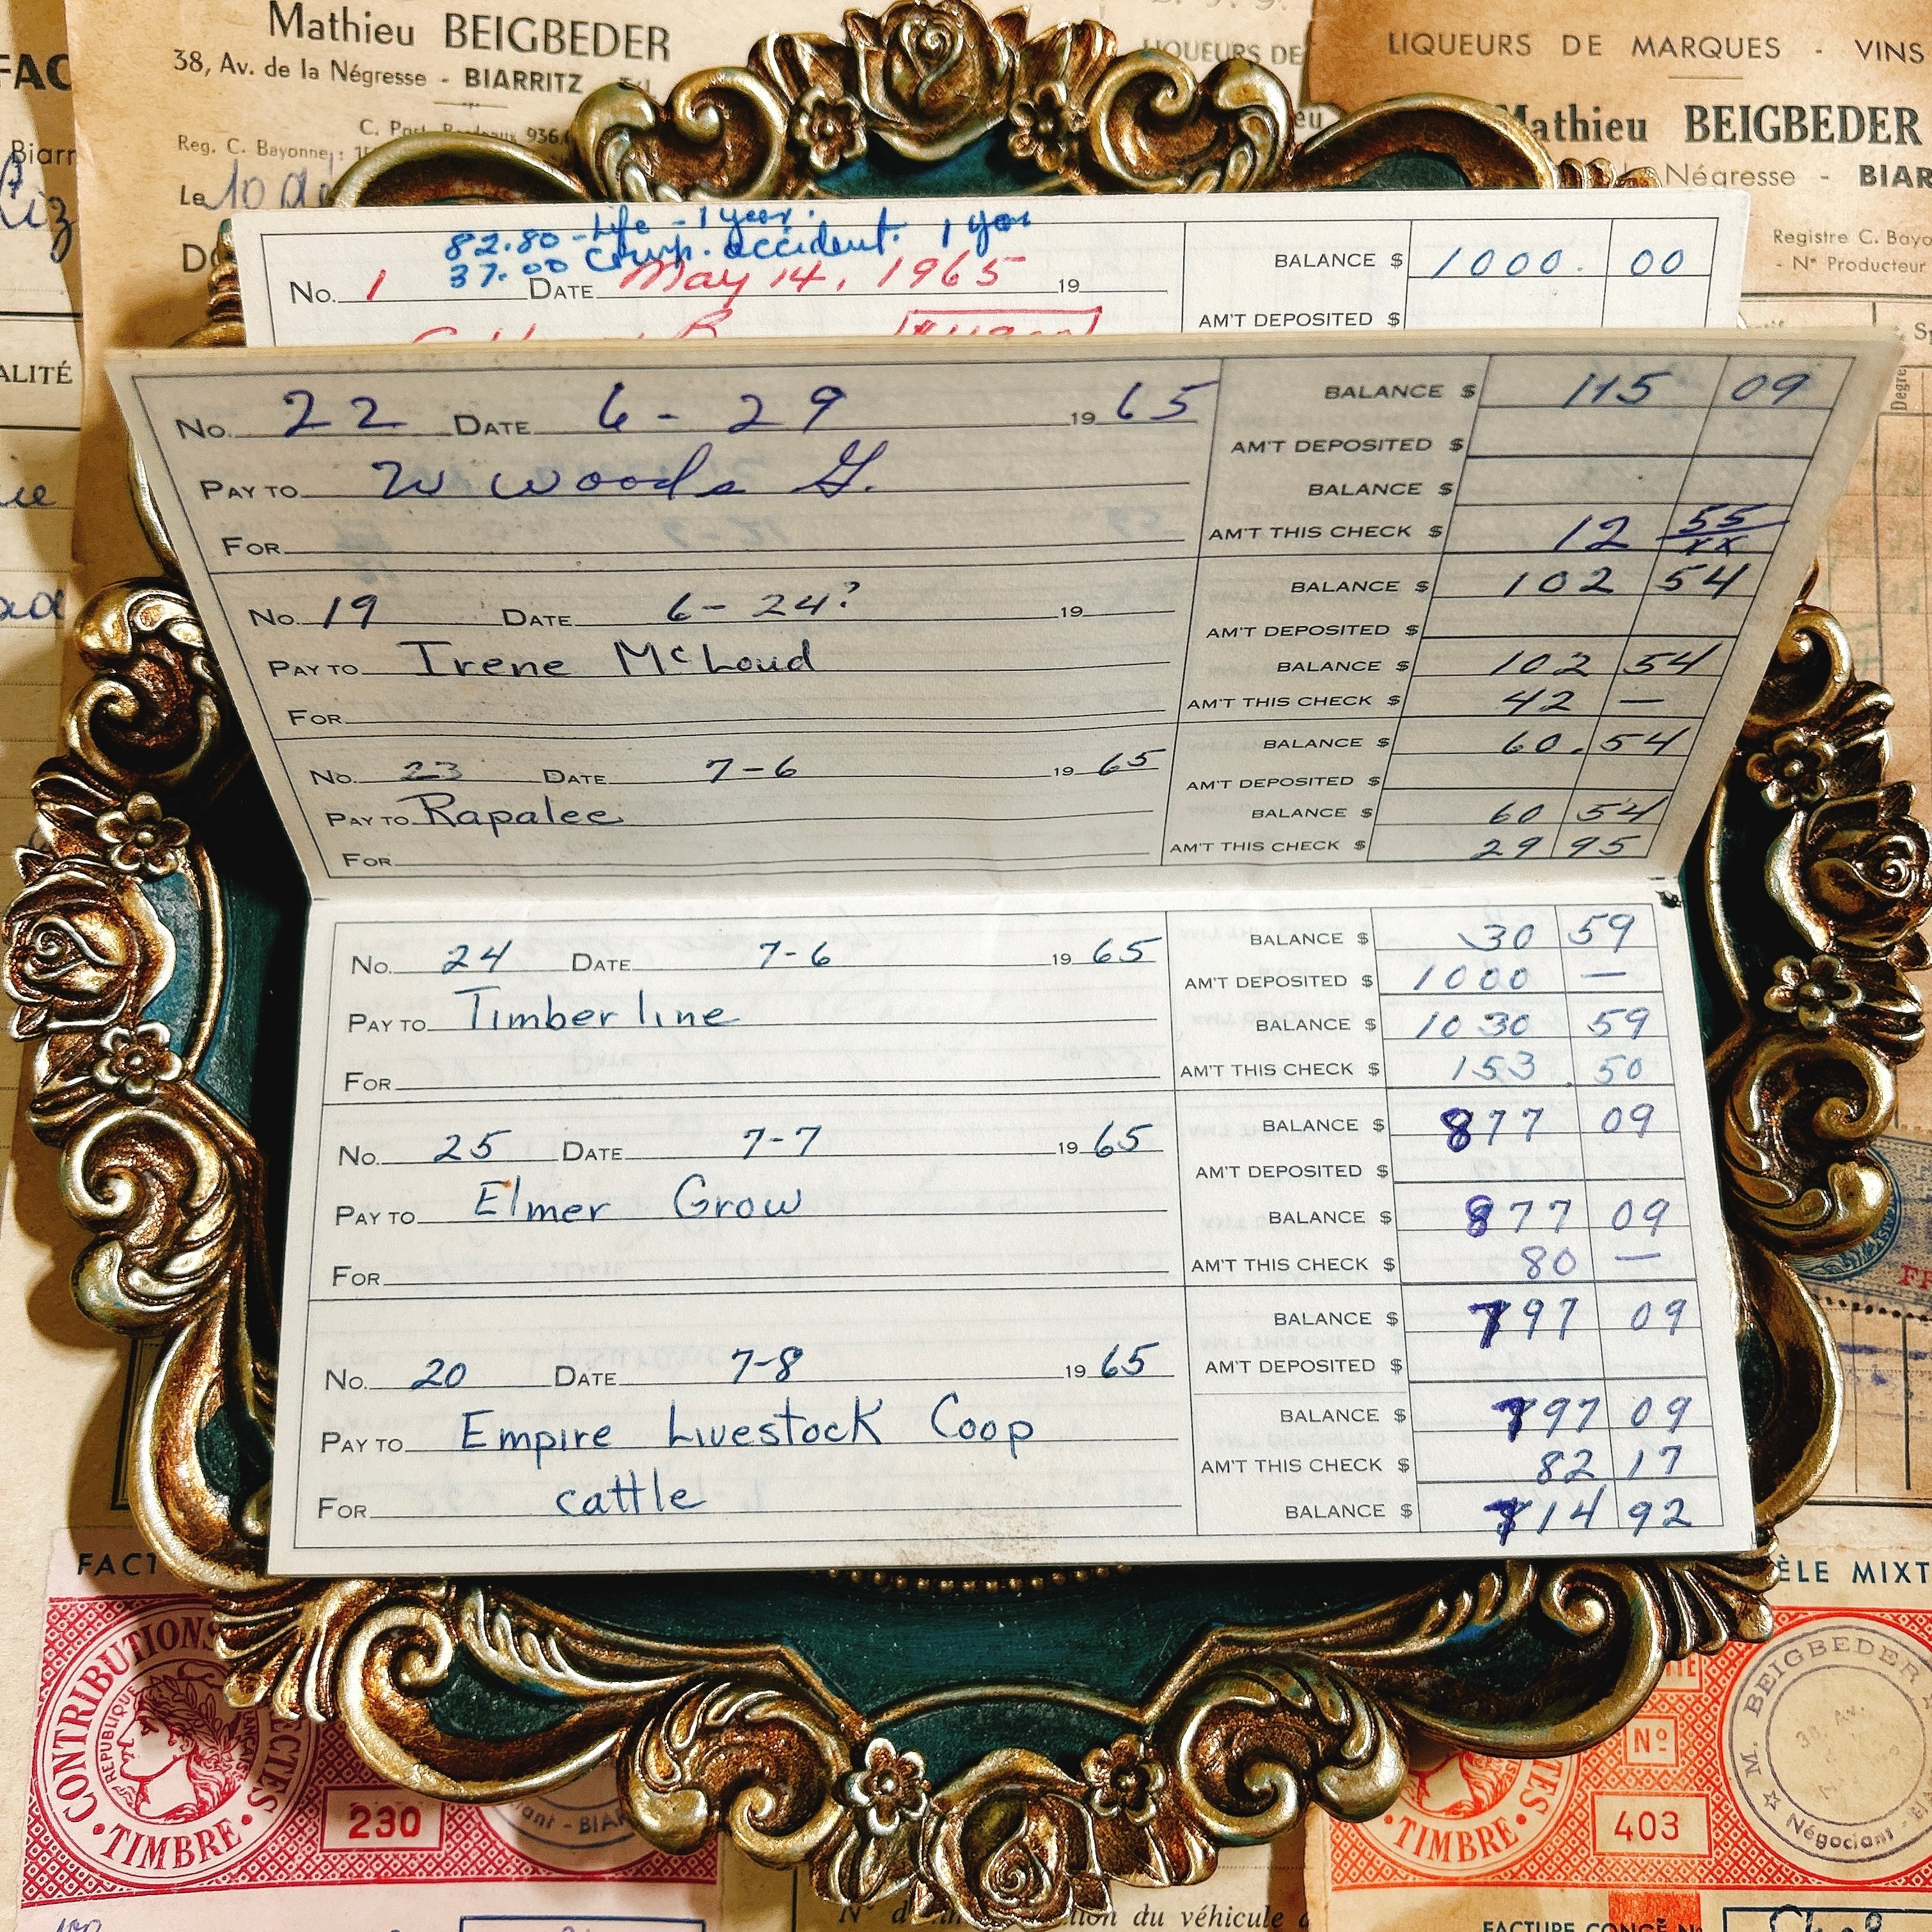 Mathieu BEIGBEDER
38, Av. de la Négresse - BIARRITZ
Reg. C. Bayonne
Le 10
FAC
Biarr
ALITÉ
LIQUEURS DE
LIQUEURS DE MARQUES - VINS
Mathieu BEIGBEDER
Négresse - BIAR
Registre C. Bayo
- N° Producteur
Degré
82.80 - Life - 1 year.
37.00 comp. accident. 1 year
No. 1 DATE May 14, 1965 19
BALANCE $ 1000. 00
AM'T DEPOSITED $
No. 22 DATE 6 - 29 19 65
BALANCE $ 115 09
AM'T DEPOSITED $
PAY TO W Woods G.
BALANCE $
FOR
AM'T THIS CHECK $ 12 55/xx
No. 19 DATE 6 - 24? 19
BALANCE $ 102 54
AM'T DEPOSITED $
PAY TO Irene McLoud
BALANCE $ 102 54
FOR
AM'T THIS CHECK $ 42 —
No. 23 DATE 7-6 19 65
BALANCE $ 60.54
AM'T DEPOSITED $
PAY TO Rapalee
BALANCE $ 60 54
FOR
AM'T THIS CHECK $ 29 95
No. 24 DATE 7-6 19 65
BALANCE $ 30 59
AM'T DEPOSITED $ 1000 —
PAY TO Timberline
BALANCE $ 1030 59
FOR
AM'T THIS CHECK $ 153.50
No. 25 DATE 7-7 19 65
BALANCE $ 877 09
AM'T DEPOSITED $
PAY TO Elmer Grow
BALANCE $ 877 09
FOR
AM'T THIS CHECK $ 80 —
BALANCE $ 797 09
No. 20 DATE 7-8 19 65
AM'T DEPOSITED $
PAY TO Empire Livestock Coop
BALANCE $ 797 09
AM'T THIS CHECK $ 82 17
FOR cattle
BALANCE $ 714 92
FACT
ÈLE MIXT
CONTRIBUTIONS
RÉPUBLIQUE
TIMBRE
230
BIAR
N°
403
TIMBRE
M. BEIGBEDER
38, AV.
Négociant
du véhicule
FACTURE CONGÉ N°